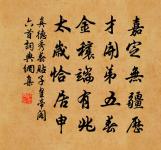 嘉定無疆歷
才開第五春
金穰端有兆
太歲恰居申
真德秀春貼子皇帝閣
六首詞典網集